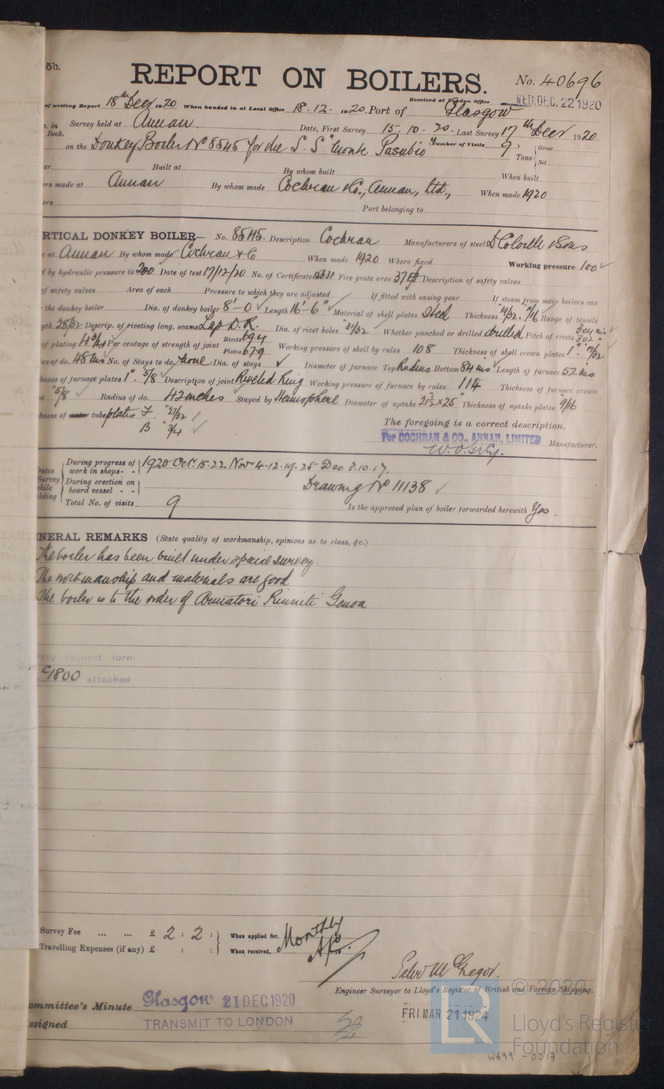 5b.
REPORT ON BOILERS.
No. 40696
Received at London Office WED. DEC. 22 1920
of writing Report 18th Decr 1920 When handed in at Local Office 18.12.1920 Port of Glasgow
in Survey held at Annan. Date, First Survey 15.10.20. Last Survey 17th Decr 1920
Book.
on the Donkey Boiler No 8545 for the S.S "Monte Pasubio" Number of Visits 9 Tons Gross Net
Built at By whom built When built
made at Annan By whom made Cochran & Co., Annan, Ltd., When made 1920
Port belonging to
RTICAL DONKEY BOILER— No. 8545 Description Cochran Manufacturers of steel D Colville & Sons
at Annan By whom made Cochran & Co When made 1920 Where fixed Working pressure 100
by hydraulic pressure to 200 Date of test 17/12/20 No. of Certificate 15331 Fire grate area 37 Description of safety valves
of safety valves Area of each Pressure to which they are adjusted If fitted with easing gear If steam from main boilers can
the donkey boiler Dia. of donkey boiler 8'-0 Length 16'-6" Material of shell plates Steel Thickness 19/32. 7/16 Range of tensile
Descrip. of riveting long. seams Lap D.R. Dia. of rivet holes 31/32 Whether punched or drilled drilled Pitch of rivets
of plating Per centage of strength of joint Rivets Plates 67.9 Working pressure of shell by rules 108 Thickness of shell crown plates
No. of Stays to do. none Dia. of stays Diameter of furnace Top Radius Bottom 84 ins Length of furnace 52 ins
ness of furnace plates 5/8 Description of joint Riveted Ring Working pressure of furnace by rules 114 Thickness of furnace crown
5/8 Radius of do. 42 inches Stayed by Hemisphere Diameter of uptake Thickness of uptake plates 9/16
ness of tube plates F. 27/32
B 3/4
The foregoing is a correct description,
For COCHRAN & CO., ANNAN, LIMITED Manufacturer.
During progress of work in shops - - 1920 Oct. 15. 22. Nov. 4. 12. 19. 25 Dec 7. 10. 17.
During erection on board vessel - - Drawing No 11138
Total No. of visits 9 Is the approved plan of boiler forwarded herewith Yes.
NERAL REMARKS (State quality of workmanship, opinions as to class, &c.)
The boiler has been built under special survey
The workmanship and materials are good
The boiler is to the order of Armatori Riuniti Genoa
request form
attached
Survey Fee ... ... £ 2 : 2 : When applied for, Monthly
Travelling Expenses (if any) £ : : When received,
Engineer Surveyor to Lloyd's Register of British and Foreign Shipping.
ommittee's Minute Glasgow 21 DEC 1920
ssigned TRANSMIT TO LONDON
FRI. MAR 21 1924
LR
Lloyd's Register
Foundation
W699-0017